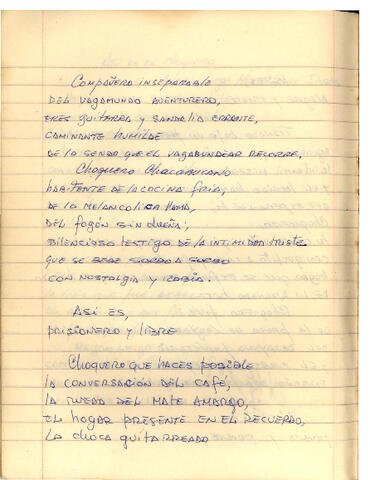 Compañero inseparable
DEL VAGAMUNDO AVENTURERO,
ERES GUITARRA Y SANDALIA ERRANTE,
CAMINANTE HUMILDE
DE LA SENDA QUE EL VAGABUNDEAR RECORRE,
CHOQUERO CHACABUCANO
HABITANTE DE LA COCINA FRÍA,
DE LA MELANCOLICA
DEL FOGÓN SIN DUEÑA;
SILENCIOSO TESTIGO DE LA INTIMIDAD TRISTE
QUE SE BEBE SORBO A SORBO
CON NOSTALGIA Y RABIA.
ASI ES,
PRISIONERO Y LIBRE
CHOQUERO QUE HACES POSIBLE
LA CONVERSACIÓN DEL CAFÉ,
LA RUEDA DEL MATE AMARGO,
EL HOGAR PRESENTE EN EL RECUERDO,
LA CHOCA GUITARREADA